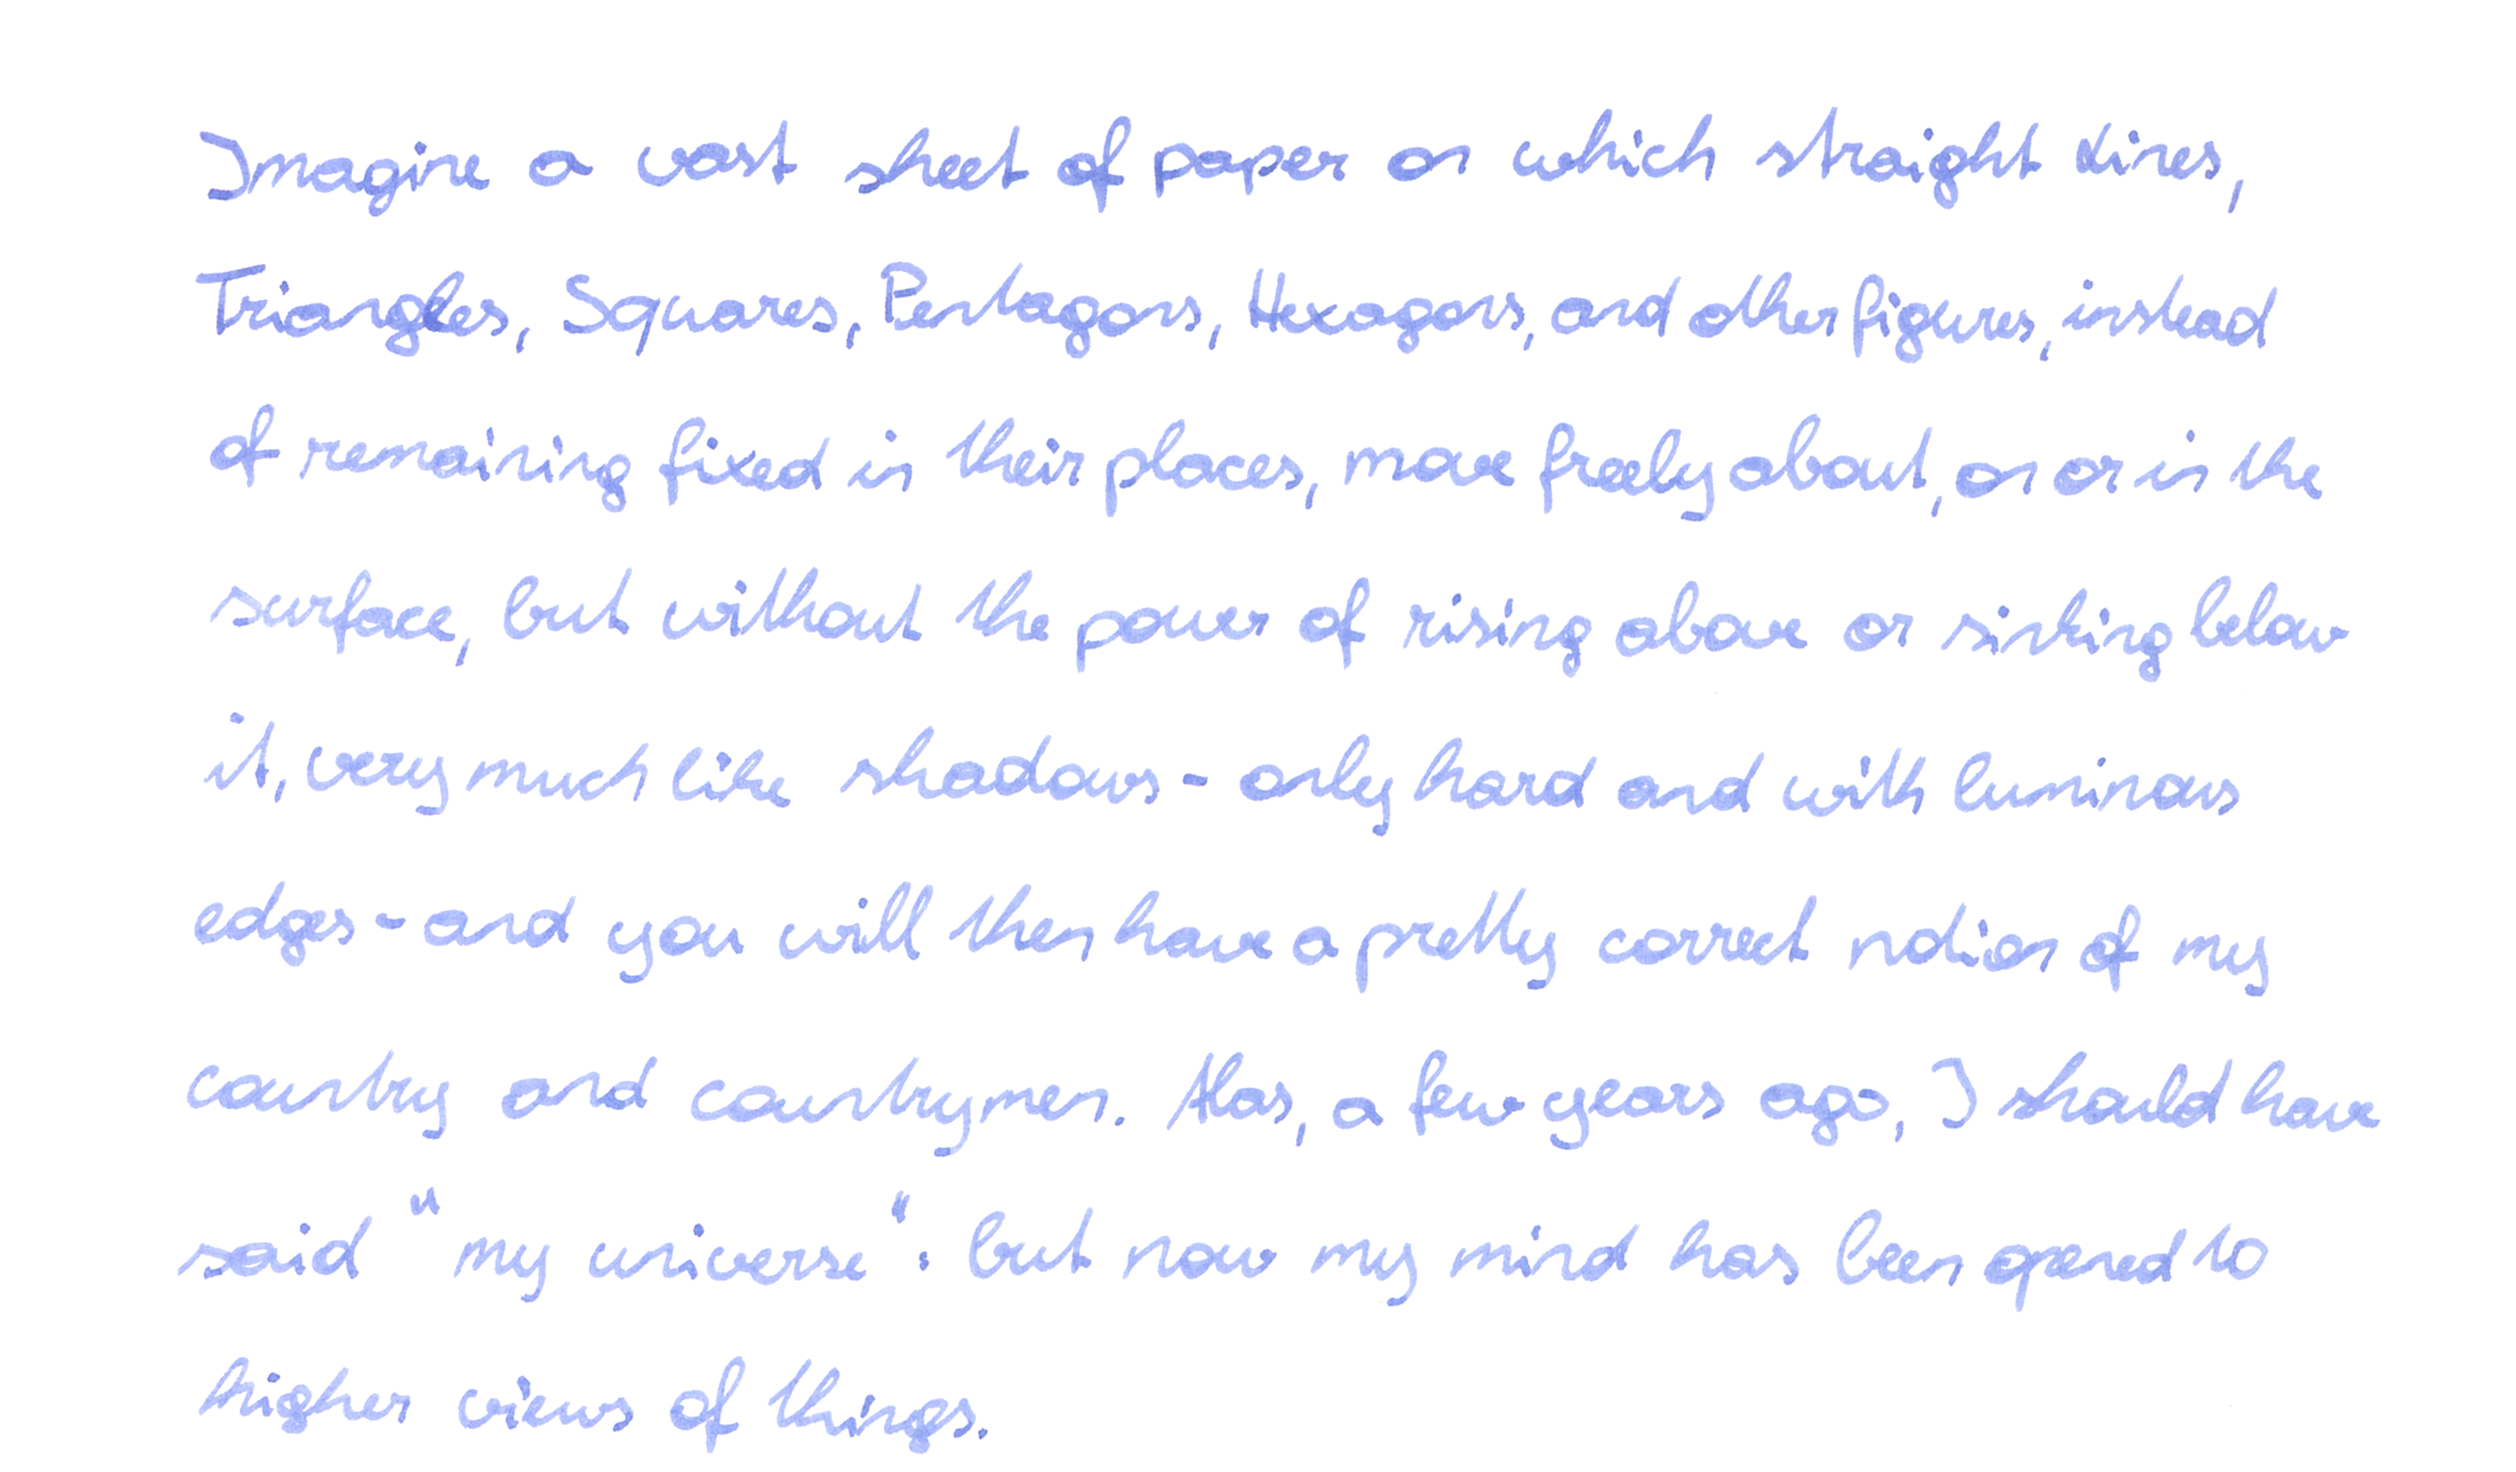 Imagine a vast sheet of paper on which straight Lines,
Triangles, Squares, Pentagons, Hexagons, and other figures, instead
of remaining fixed in their places, move freely about, on or in the
surface, but without the power of rising above or sinking below
it, very much like shadows - only hard and with luminous
edges - and you will then have a pretty correct notion of my
country and countrymen. Alas, a few years ago, I should have
said "my universe": but now my mind has been opened to
higher views of things.